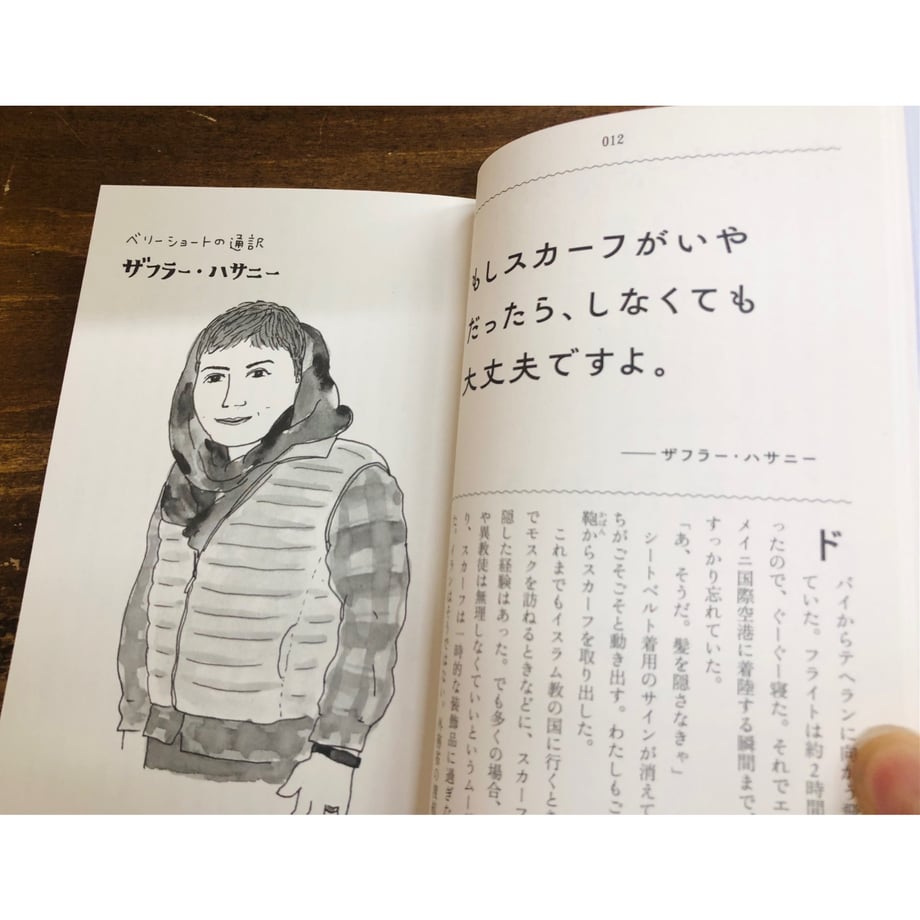 ベリーショートの通訳
ザフラー・ハサニー
012
もしスカーフがいや
だったら、しなくても
大丈夫ですよ。
——ザフラー・ハサニー
ドバイからテヘランに向かう
ていた。フライトは約2時間
ったので、ぐーぐー寝た。それでエ
メイニ国際空港に着陸する瞬間まで、
すっかり忘れていた。
「あ、そうだ。髪を隠さなきゃ」
シートベルト着用のサインが消えて
ちがごそごそと動き出す。わたしもご
鞄からスカーフを取り出した。
かばん
これまでもイスラム教の国に行くとき
でモスクを訪ねるときなどに、スカーフ
隠した経験はあった。でも多くの場合、
や異教徒は無理しなくていいというムー
り、スカーフは一時的な装飾品に過ぎな
た。イランはそうではない。